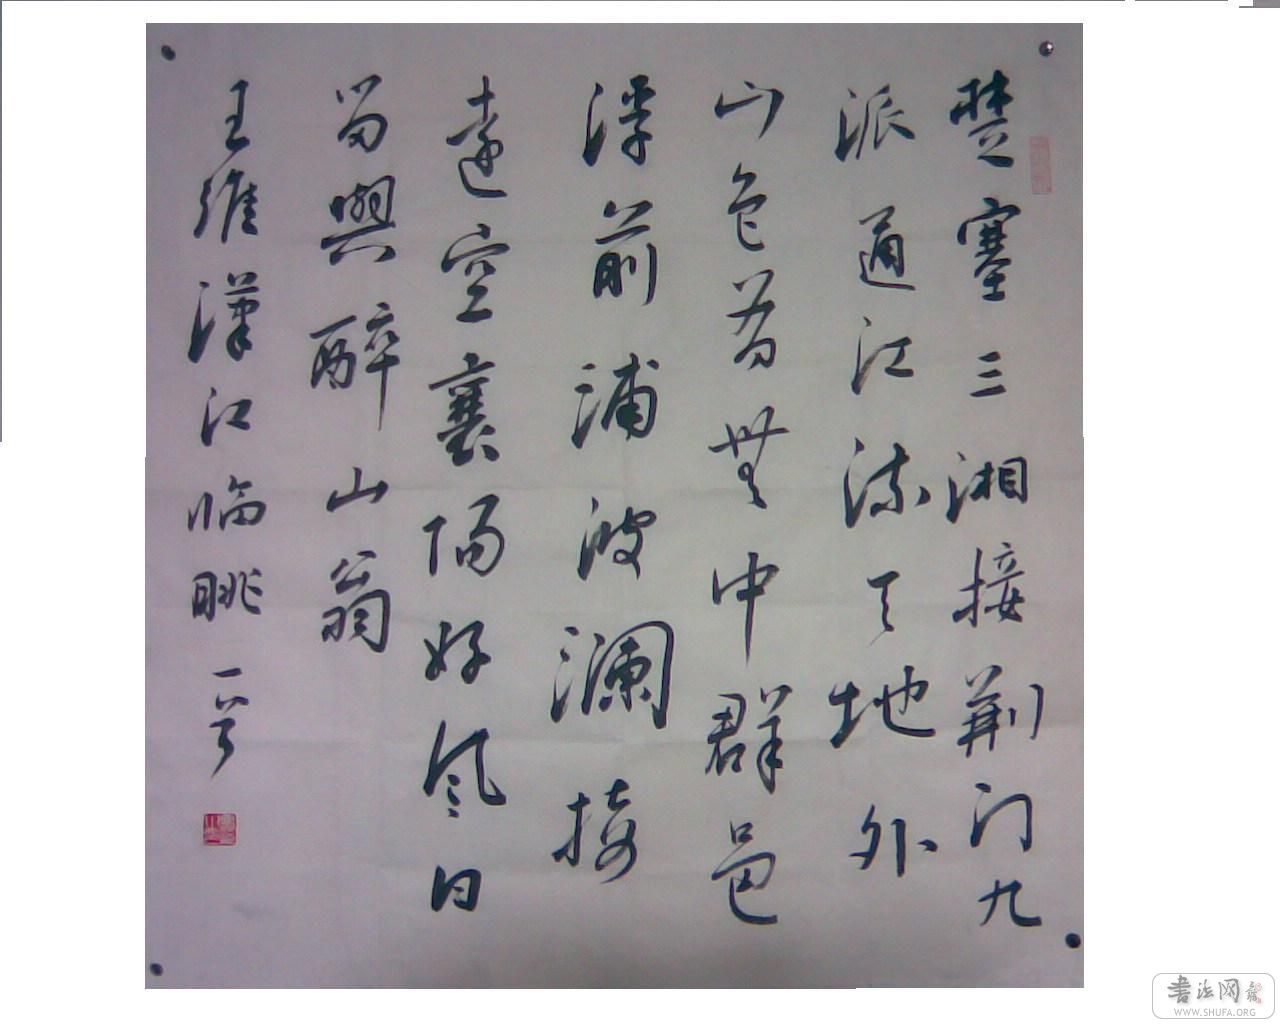 楚塞三湘接荆门九
派通江流天地外
山色有無中群邑
浮前浦波澜接
遠空襄陽好风日
留與醉山翁
王维漢江临眺 一
书法网
WWW.SHUFA.ORG